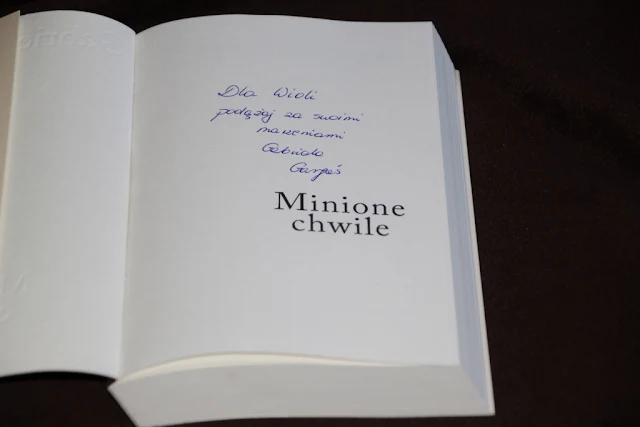 Dla Wioli
podążaj za swoimi
marzeniami
Gabriela
Gargaś
Minione
chwile